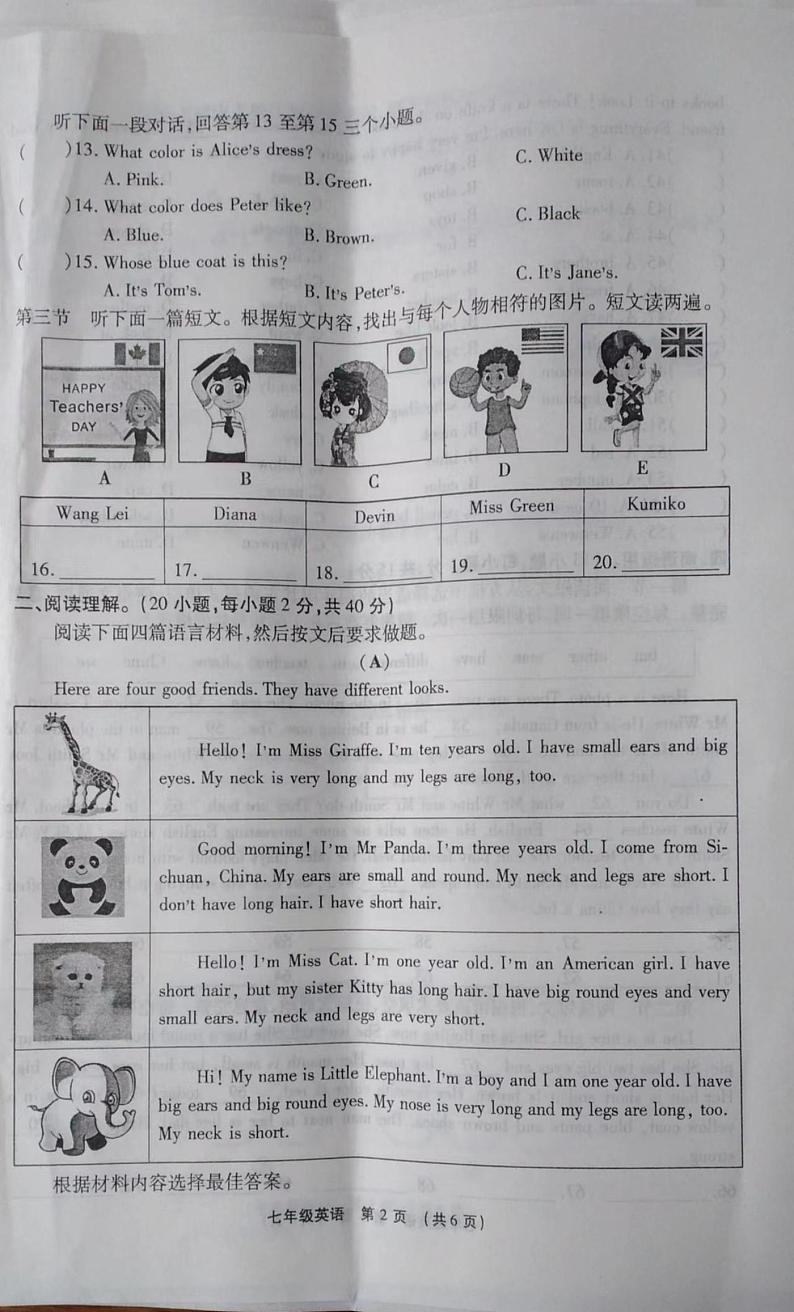 听下面一段对话,回答第 13 至第 15 三个小题。
( )13. What color is Alice's dress?
A. Pink. B. Green. C. White
( )14. What color does Peter like?
A. Blue. B. Brown. C. Black
( )15. Whose blue coat is this?
A. It's Tom's. B. It's Peter's. C. It's Jane's.
第三节 听下面一篇短文。根据短文内容,找出与每个人物相符的图片。短文读两遍。
HAPPY
Teachers'
DAY
A B C D E
Wang Lei Diana Devin Miss Green Kumiko
16. ________ 17. ________ 18. ________ 19. ________ 20. ________
二、阅读理解。(20 小题,每小题 2 分,共 40 分)
阅读下面四篇语言材料,然后按文后要求做题。
(A)
Here are four good friends. They have different looks.
Hello! I'm Miss Giraffe. I'm ten years old. I have small ears and big
eyes. My neck is very long and my legs are long, too.
Good morning! I'm Mr Panda. I'm three years old. I come from Si-
chuan, China. My ears are small and round. My neck and legs are short. I
don't have long hair. I have short hair.
Hello! I'm Miss Cat. I'm one year old. I'm an American girl. I have
short hair, but my sister Kitty has long hair. I have big round eyes and very
small ears. My neck and legs are very short.
Hi! My name is Little Elephant. I'm a boy and I am one year old. I have
big ears and big round eyes. My nose is very long and my legs are long, too.
My neck is short.
根据材料内容选择最佳答案。
七年级英语 第 2 页 (共 6 页)